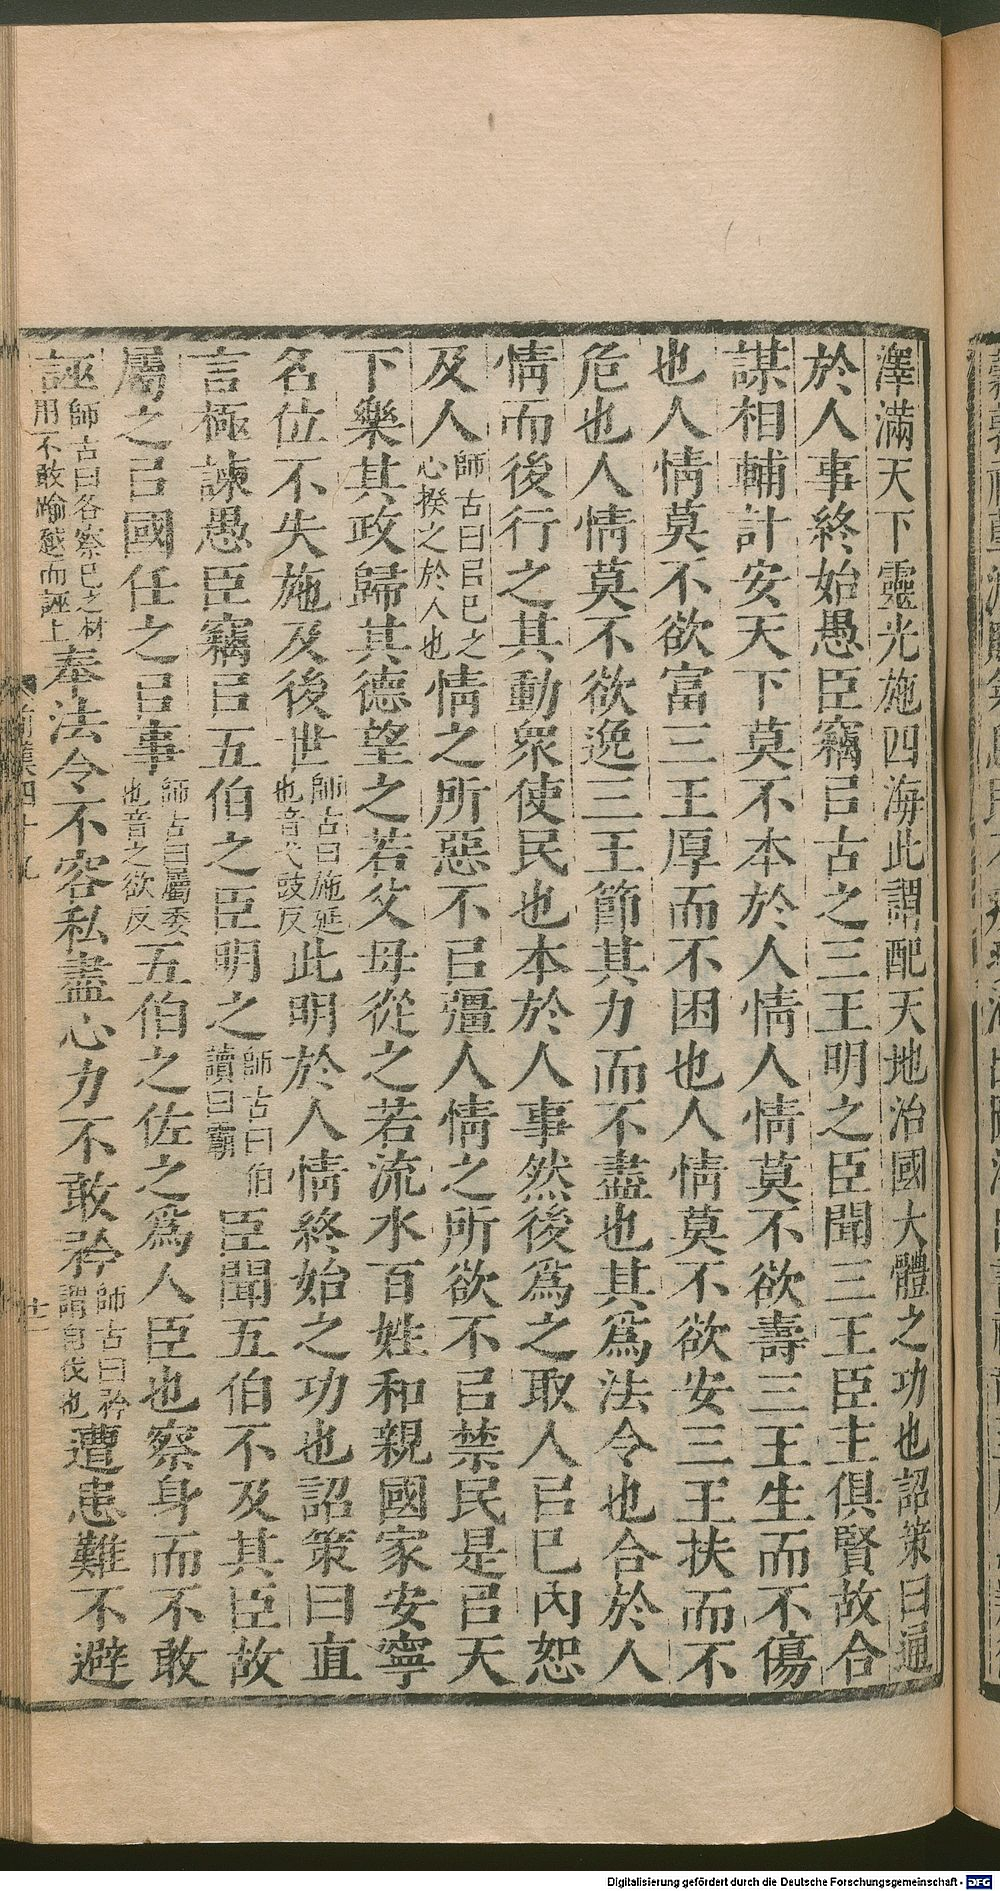 澤滿天下靈光施四海此謂配天地治國大體之功也詔策曰通
於人事終始愚臣竊㠯古之三王明之臣聞三王臣主俱賢故合
謀相輔計安天下莫不本於人情人情莫不欲壽三王生而不傷
也人情莫不欲富三王厚而不困也人情莫不欲安三王扶而不
危也人情莫不欲逸三王節其力而不盡也其爲法令也合於人
情而後行之其動衆使民也本於人事然後爲之取人㠯己內恕
及人師古曰㠯己之心揆之於人也情之所惡不㠯彊人情之所欲不㠯禁民是㠯天
下樂其政歸其德望之若父母從之若流水百姓和親國家安寧
名位不失施及後世師古曰施延也音弋豉反此明於人情終始之功也詔策曰直
言極諫愚臣竊㠯五伯之臣明之師古曰伯讀曰霸臣聞五伯不及其臣故
屬之㠯國任之㠯事師古曰屬委也音之欲反五伯之佐之爲人臣也察身而不敢
誣師古曰各察己之材用不敢踰越而誣上奉法令不容私盡心力不敢矜師古曰矜謂自伐也遭患難不避
前漢四十九
十二
Digitalisierung gefördert durch die Deutsche Forschungsgemeinschaft - DFG